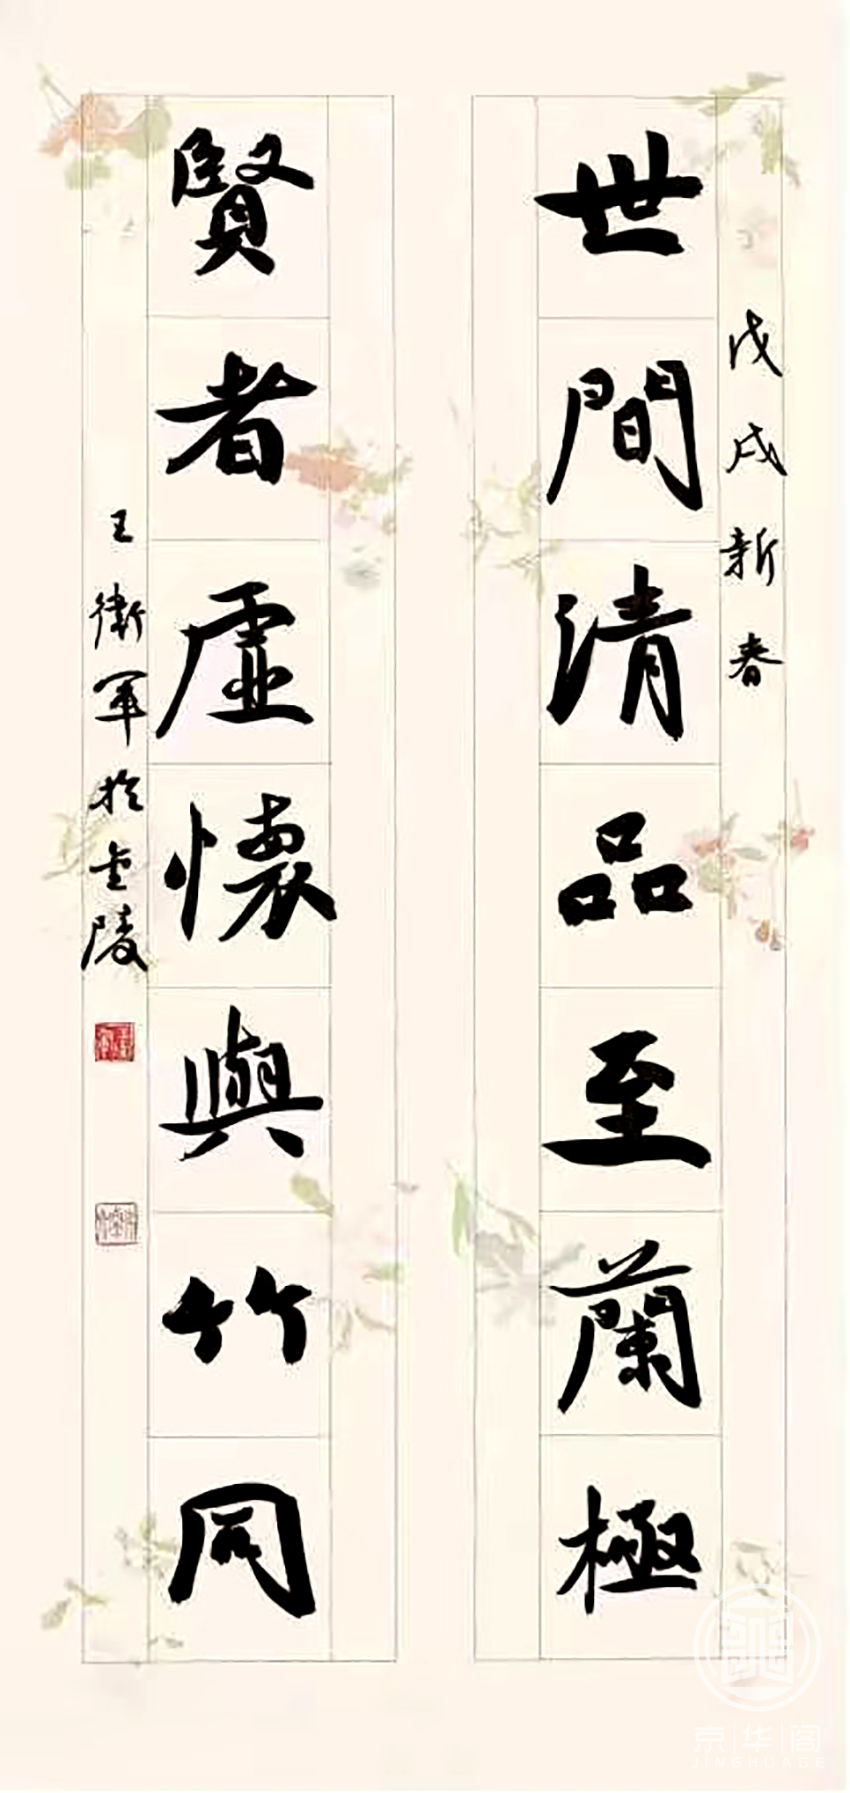 戊戌新春
世間清品至蘭極
賢者虛懷與竹同
王衛軍於金陵
京|华|阁
JINGHUAGE